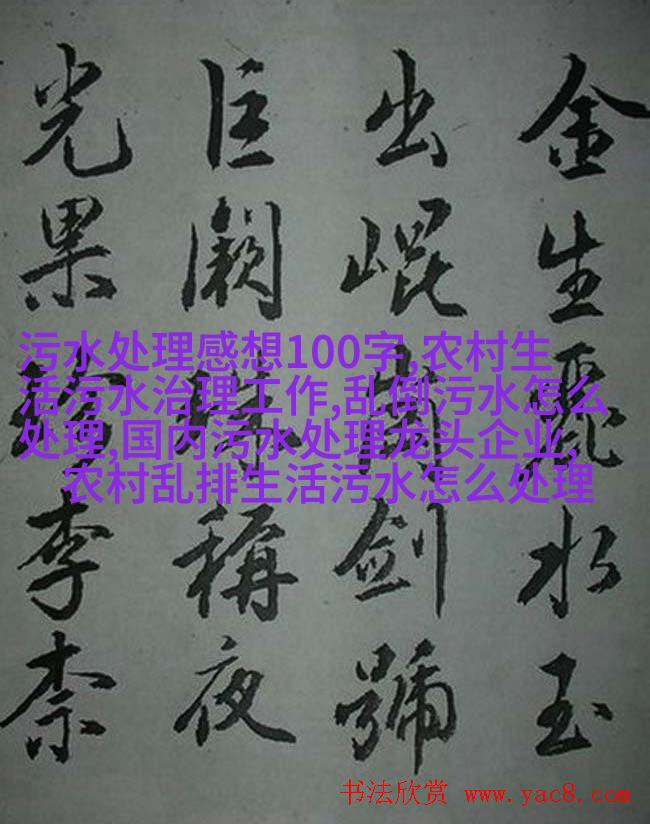 金生麗水玉
出崐岡劍號
巨闕珠稱夜
光果珍李柰
污水处理感想100字,农村生
活污水治理工作,乱倒污水怎么
处理,国内污水处理龙头企业,
农村乱排生活污水怎么处理
书法欣赏 www.yac8.com